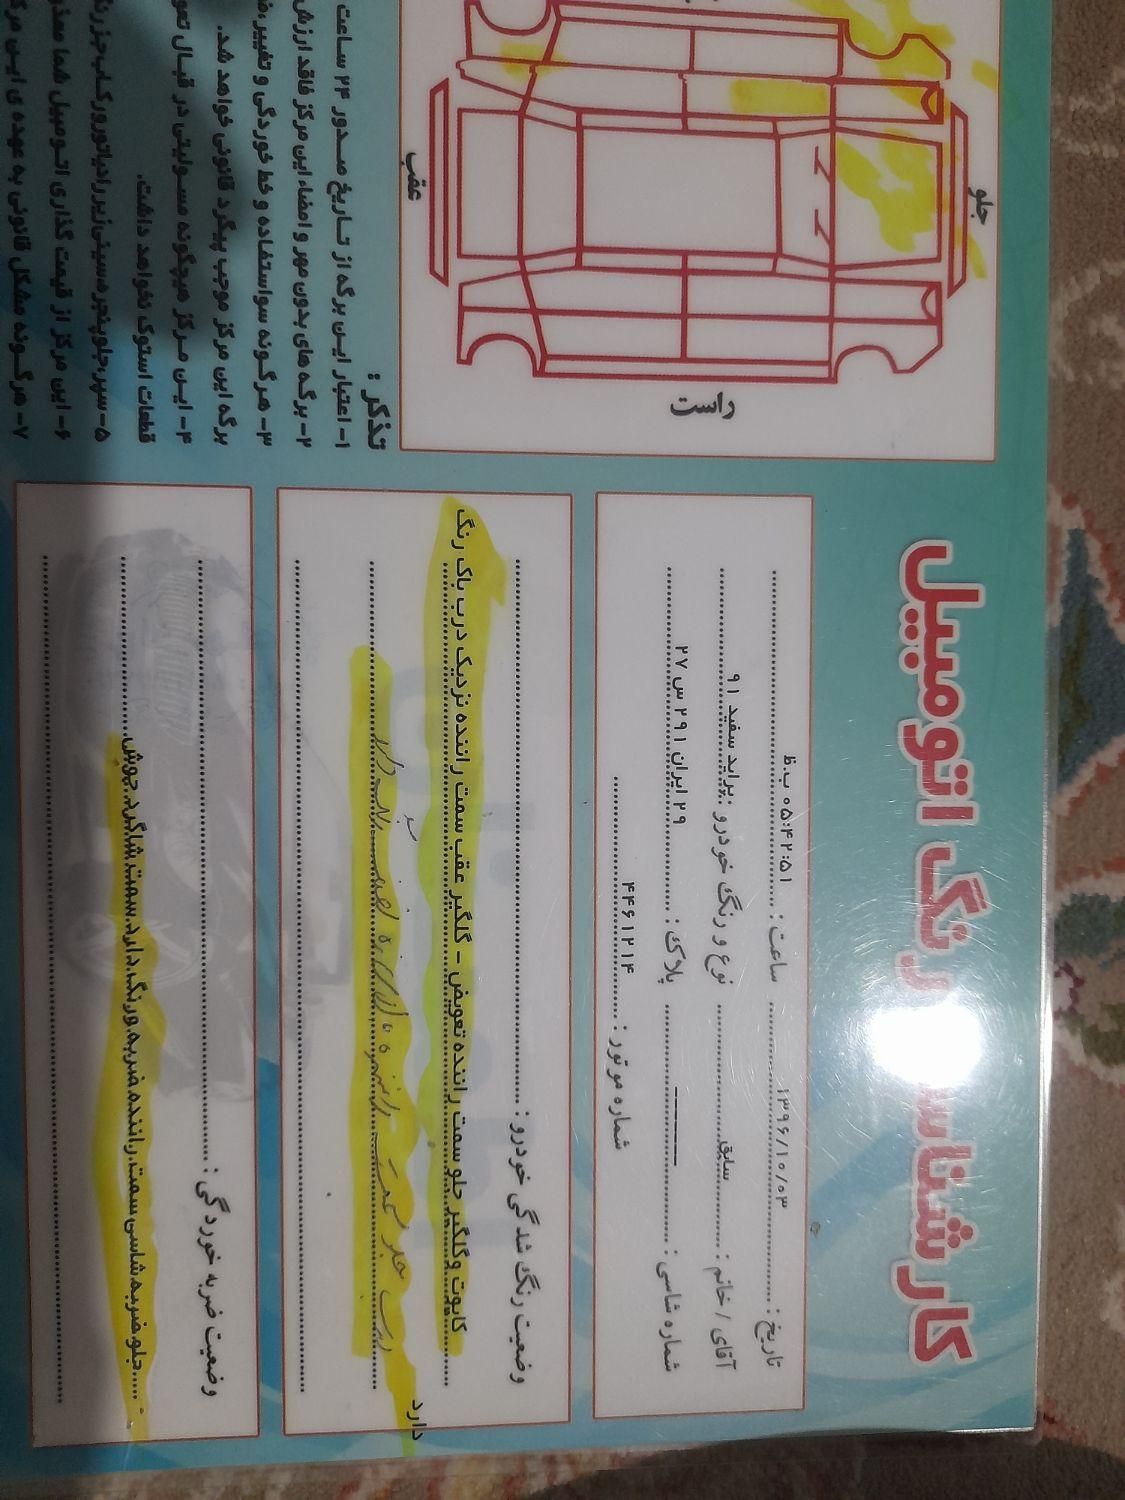 کارشناسی رنگ اتومبیل
تاریخ : ۱۳۹۶/۱۰/۰۳ ساعت : ۰۵:۴۲:۵۱ ب.ظ
آقای / خانم : سابق نوع و رنگ خودرو : پراید سفید ۹۱
شماره شاسی : ـــــــ پلاک : ۲۹ ایران ۲۹۱ س ۲۷
شماره موتور : ۴۴۶۱۲۱۴
وضعیت رنگ شدگی خودرو :
کاپوت و گلگیر جلو سمت راننده تعویض - گلگیر عقب سمت راننده نزدیک درب باک رنگ
دارد
درب جلو سمت راننده
وضعیت ضربه خوردگی :
جلو ضربه شاسی سمت راننده ضربه ورنگ دارد سمت شاگرد جوش
جلو
عقب
راست
تذکر :
۱- اعتبار این برگه از تاریخ صدور ۲۴ ساعت
۲- برگه های بدون مهر و امضاء این مرکز فاقد ارزش
۳- هرگونه سواستفاده و خط خوردگی و تغییر
برگه این مرکز موجب پیگرد قانونی خواهد شد.
۴- این مرکز هیچگونه مسولیتی در قبال
قطعات استوک نخواهد داشت.
۵- سپر،جلوپنجره،سینی زیر رادیاتور و رکاب جز
۶- این مرکز از قیمت گذاری اتومبیل شما
۷- هرگونه مشکل قانونی به عهده ی این